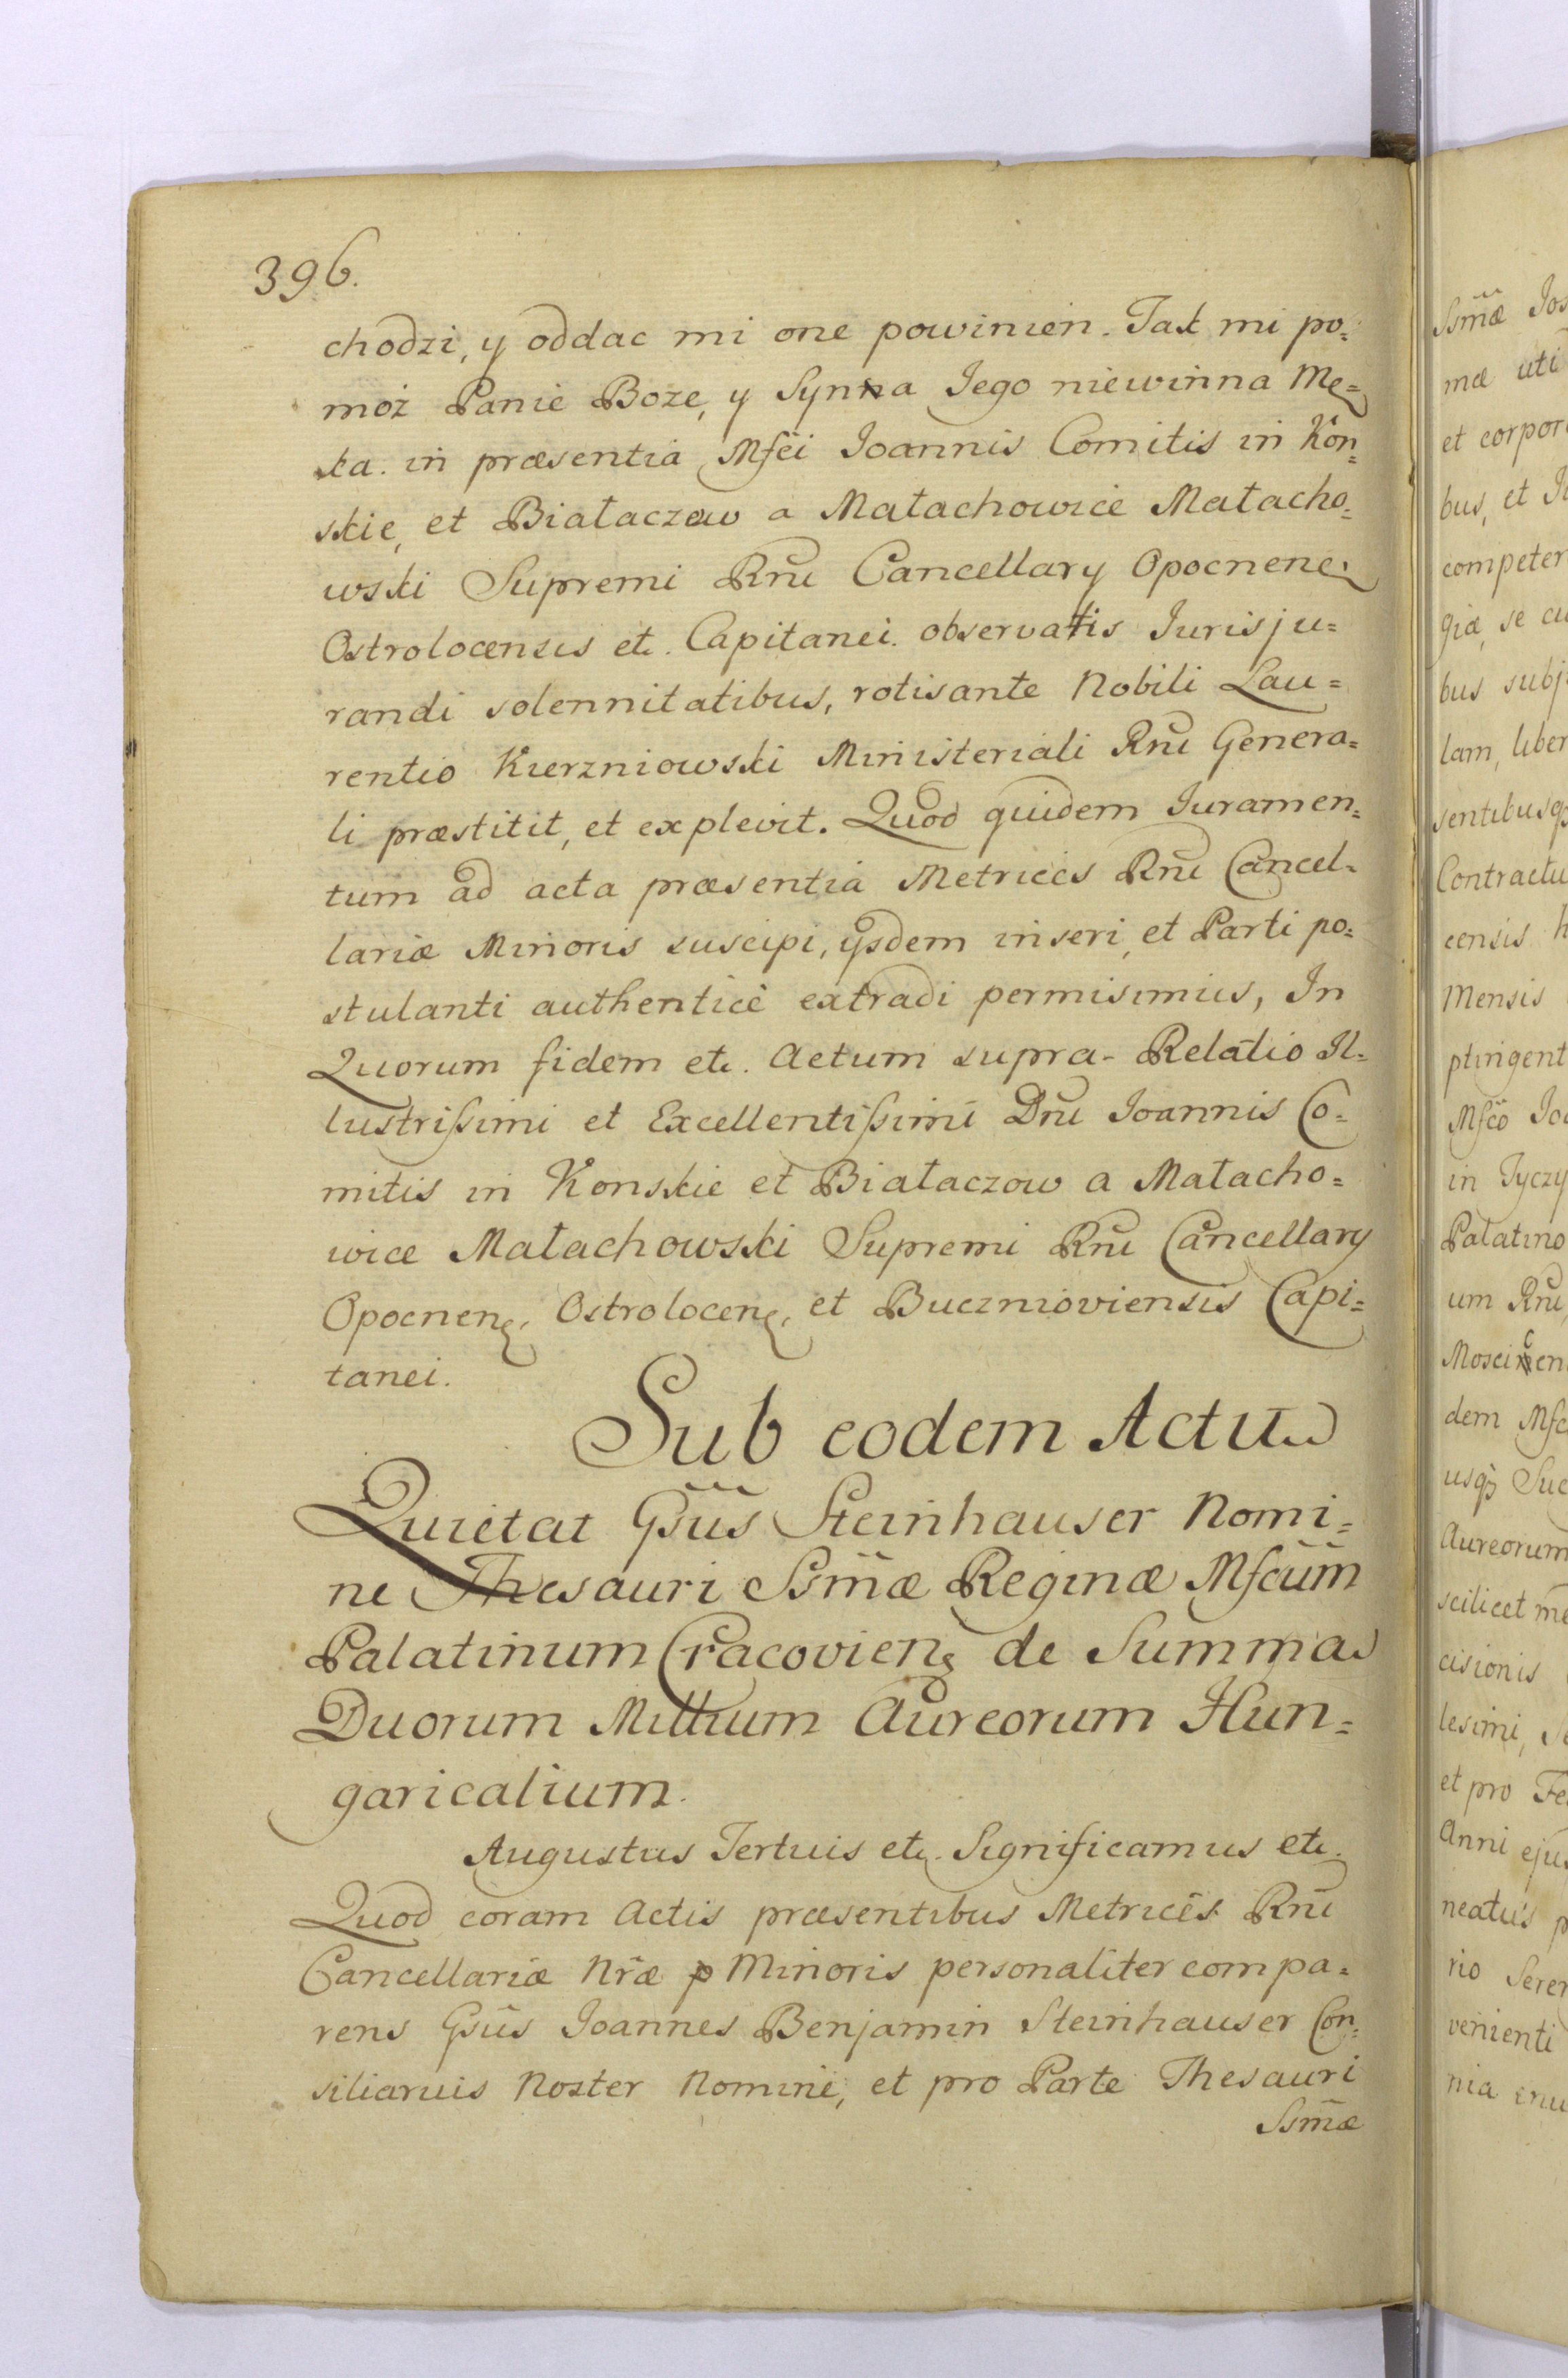 396.
chodzi, y oddac mi one powinien. Tak mi po=
moż Panie Boze, y Synna Jego niewinna Mę=
ka. in præsentia Mfci Joannis Comitis in Kon=
skie, et Białaczow a Małachowice Małacho=
wski Supremi Rni Cancellary Opocnenẽ
Ostrolocensis etc. Capitanei. observatis Jurisju=
randi solennitatibus, rotisante Nobili Lau=
rentio Kierzniowski Ministeriali Rni Genera=
li præstitit, et explevit. Quod quidem Juramen=
tum ad acta præsentia Metrices Rni Cancel=
lariæ Minoris suscipi, ysdem inseri, et Parti po=
stulanti authenticè extradi permisimus, In
Quorum fidem etc. Actum supra- Relatio Il=
lustrissimi et Excellentissimi Dni Joannis Co=
mitis in Konskie et Białaczow a Małacho=
wice Małachowski Supremi Rni Cancellary
Opocnen, Ostrolocen, et Bucznioviensis Capi=
tanei.
Sub eodem Actu
Quietat Gsũs Steinhauser Nomi=
ne Thesauri Ssm̃æ Reginæ Mfcũm
Palatinum Cracovien de Summa
Duorum Millium Aureorum Hun=
garicalium.
Augustus Tertius etc. Significamus etc.
Quod coram Actis præsentibus Metrices Rni
Cancellariæ Nr̃æ Minoris personaliter compa=
rens Gsũs Joannes Benjamin Steinhauser Con=
siliarius Noster Nomine, et pro Parte Thesauri
Ssm̃æ
Ssm̃æ Jos
mæ uti
et corpor
bus, et Ju
competer
giæ, se cu
bus subj
lam, liber
sentibusq3
Contractu
censis h
Mensis
ptingent
Mfcõ Joa
in Tyczy
Palatino
um Rni
Moscicen
dem Mfc
usq3 Suc
Aureorum
scilicet me
cisionis
lesimi, Se
et pro Fe
Anni ejus
neatus p
rio Seren
venienti
nia enu